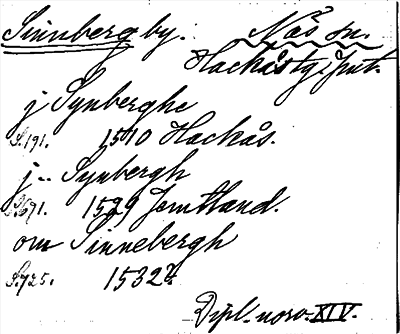 Sinnberg by. Näs sn.
Hackås tg. Jmt.
j Synberghe
S. 191. 1510 Hackås.
j -- Synbergh
S. 691. 1529 Jemtland.
om Sinnebergh
S. 725. 1532
Dipl. norv. XIV.